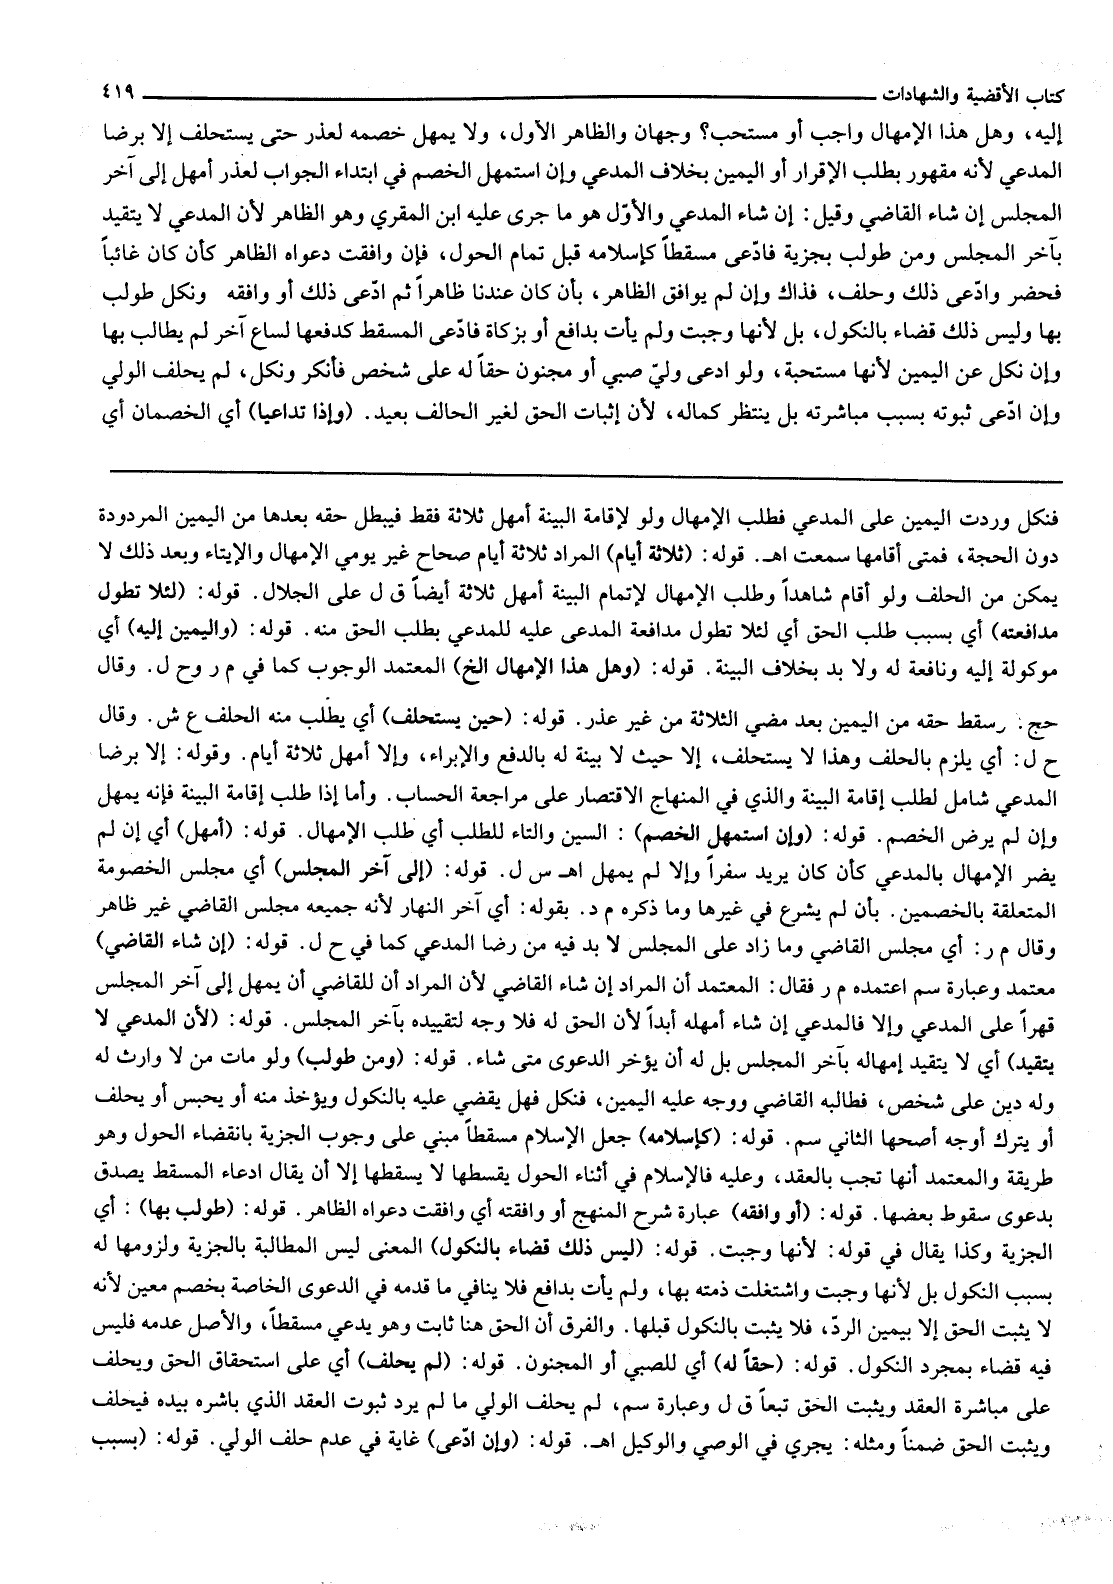 كتاب الأقضية والشهادات ٤١٩
إليه، وهل هذا الإمهال واجب أو مستحب؟ وجهان والظاهر الأول، ولا يمهل خصمه لعذر حتى يستحلف إلا برضا
المدعي لأنه مقهور بطلب الإقرار أو اليمين بخلاف المدعي وإن استمهل الخصم في ابتداء الجواب لعذر أمهل إلى آخر
المجلس إن شاء القاضي وقيل: إن شاء المدعي والأوّل هو ما جرى عليه ابن المقري وهو الظاهر لأن المدعي لا يتقيد
بآخر المجلس ومن طولب بجزية فادّعى مسقطاً كإسلامه قبل تمام الحول، فإن وافقت دعواه الظاهر كأن كان غائباً
فحضر وادّعى ذلك وحلف، فذاك وإن لم يوافق الظاهر، بأن كان عندنا ظاهراً ثم ادّعى ذلك أو وافقه ونكل طولب
بها وليس ذلك قضاء بالنكول، بل لأنها وجبت ولم يأت بدافع أو بزكاة فادّعى المسقط كدفعها لساع آخر لم يطالب بها
وإن نكل عن اليمين لأنها مستحبة، ولو ادعى وليّ صبي أو مجنون حقاً له على شخص فأنكر ونكل، لم يحلف الولي
وإن ادّعى ثبوته بسبب مباشرته بل ينتظر كماله، لأن إثبات الحق لغير الحالف بعيد. (وإذا تداعيا) أي الخصمان أي
فنكل وردت اليمين على المدعي فطلب الإمهال ولو لإقامة البينة أمهل ثلاثة فقط فيبطل حقه بعدها من اليمين المردودة
دون الحجة، فمتى أقامها سمعت اهـ. قوله: (ثلاثة أيام) المراد ثلاثة أيام صحاح غير يومي الإمهال والإيتاء وبعد ذلك لا
يمكن من الحلف ولو أقام شاهداً وطلب الإمهال لإتمام البينة أمهل ثلاثة أيضاً ق ل على الجلال. قوله: (لئلا تطول
مدافعته) أي بسبب طلب الحق أي لئلا تطول مدافعة المدعى عليه للمدعي بطلب الحق منه. قوله: (واليمين إليه) أي
موكولة إليه ونافعة له ولا بد بخلاف البينة. قوله: (وهل هذا الإمهال الخ) المعتمد الوجوب كما في م ر وح ل. وقال
حج: سقط حقه من اليمين بعد مضي الثلاثة من غير عذر. قوله: (حين يستحلف) أي يطلب منه الحلف ع ش. وقال
ح ل: أي يلزم بالحلف وهذا لا يستحلف، إلا حيث لا بينة له بالدفع والإبراء، وإلا أمهل ثلاثة أيام. وقوله: إلا برضا
المدعي شامل لطلب إقامة البينة والذي في المنهاج الاقتصار على مراجعة الحساب. وأما إذا طلب إقامة البينة فإنه يمهل
وإن لم يرض الخصم. قوله: (وإن استمهل الخصم) : السين والتاء للطلب أي طلب الإمهال. قوله: (أمهل) أي إن لم
يضر الإمهال بالمدعي كأن كان يريد سفراً وإلا لم يمهل اهـ س ل. قوله: (إلى آخر المجلس) أي مجلس الخصومة
المتعلقة بالخصمين. بأن لم يشرع في غيرها وما ذكره م د. بقوله: أي آخر النهار لأنه جميعه مجلس القاضي غير ظاهر
وقال م ر: أي مجلس القاضي وما زاد على المجلس لا بد فيه من رضا المدعي كما في ح ل. قوله: (إن شاء القاضي)
معتمد وعبارة سم اعتمده م ر فقال: المعتمد أن المراد إن شاء القاضي لأن المراد أن للقاضي أن يمهل إلى آخر المجلس
قهراً على المدعي وإلا فالمدعي إن شاء أمهله أبداً لأن الحق له فلا وجه لتقييده بآخر المجلس. قوله: (لأن المدعي لا
يتقيد) أي لا يتقيد إمهاله بآخر المجلس بل له أن يؤخر الدعوى متى شاء. قوله: (ومن طولب) ولو مات من لا وارث له
وله دين على شخص، فطالبه القاضي ووجه عليه اليمين، فنكل فهل يقضي عليه بالنكول ويؤخذ منه أو يحبس أو يحلف
أو يترك أوجه أصحها الثاني سم. قوله: (كإسلامه) جعل الإسلام مسقطاً مبني على وجوب الجزية بانقضاء الحول وهو
طريقة والمعتمد أنها تجب بالعقد، وعليه فالإسلام في أثناء الحول يقسطها لا يسقطها إلا أن يقال ادعاء المسقط يصدق
بدعوى سقوط بعضها. قوله: (أو وافقه) عبارة شرح المنهج أو وافقته أي وافقت دعواه الظاهر. قوله: (طولب بها) : أي
الجزية وكذا يقال في قوله: لأنها وجبت. قوله: (ليس ذلك قضاء بالنكول) المعنى ليس المطالبة بالجزية ولزومها له
بسبب النكول بل لأنها وجبت واشتغلت ذمته بها، ولم يأت بدافع فلا ينافي ما قدمه في الدعوى الخاصة بخصم معين لأنه
لا يثبت الحق إلا بيمين الردّ، فلا يثبت بالنكول قبلها. والفرق أن الحق هنا ثابت وهو يدعي مسقطاً، والأصل عدمه فليس
فيه قضاء بمجرد النكول. قوله: (حقاً له) أي للصبي أو المجنون. قوله: (لم يحلف) أي على استحقاق الحق ويحلف
على مباشرة العقد ويثبت الحق تبعاً ق ل وعبارة سم، لم يحلف الولي ما لم يرد ثبوت العقد الذي باشره بيده فيحلف
ويثبت الحق ضمناً ومثله: يجري في الوصي والوكيل اهـ. قوله: (وإن ادّعى) غاية في عدم حلف الولي. قوله: (بسبب